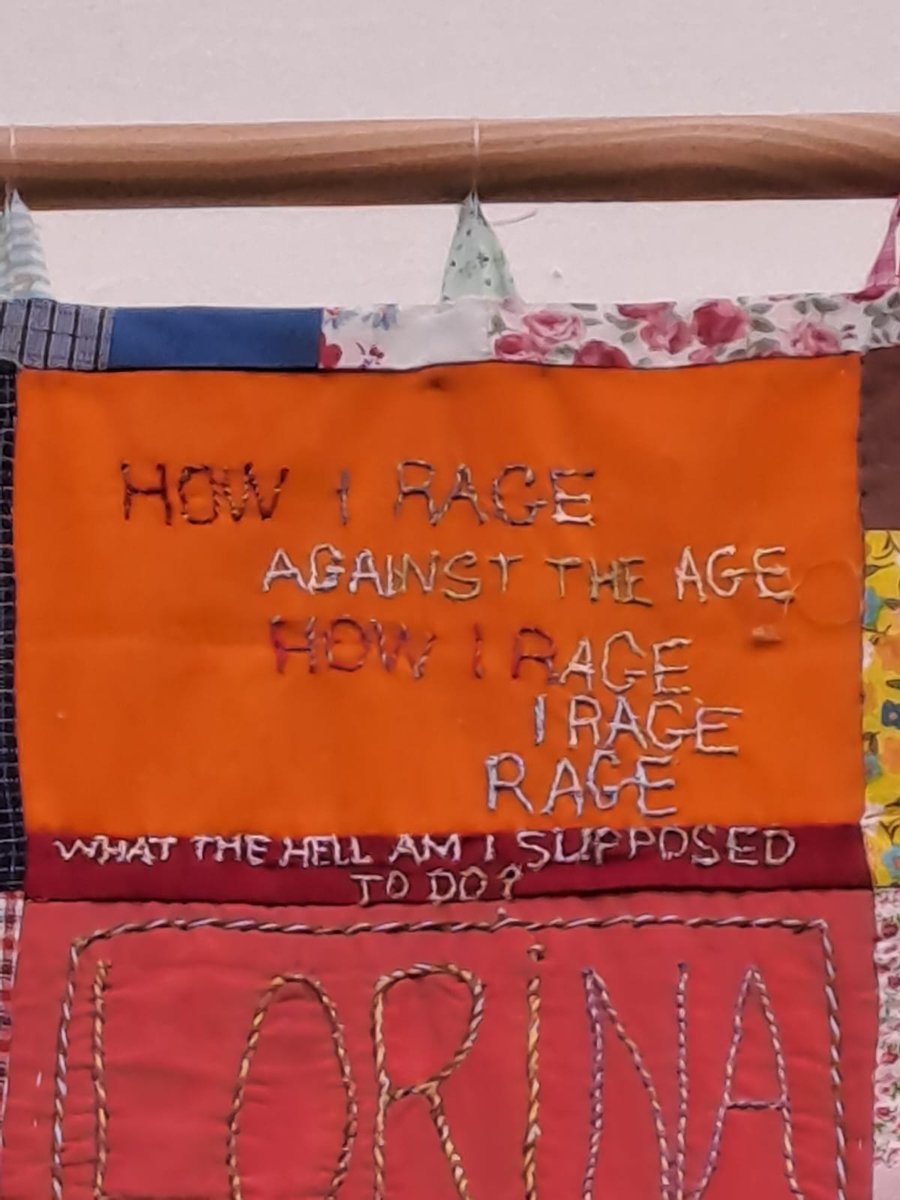 HOW I RAGE
AGAINST THE AGE
HOW I RAGE
I RAGE
RAGE
WHAT THE HELL AM I SUPPOSED
TO DO?
LORINA